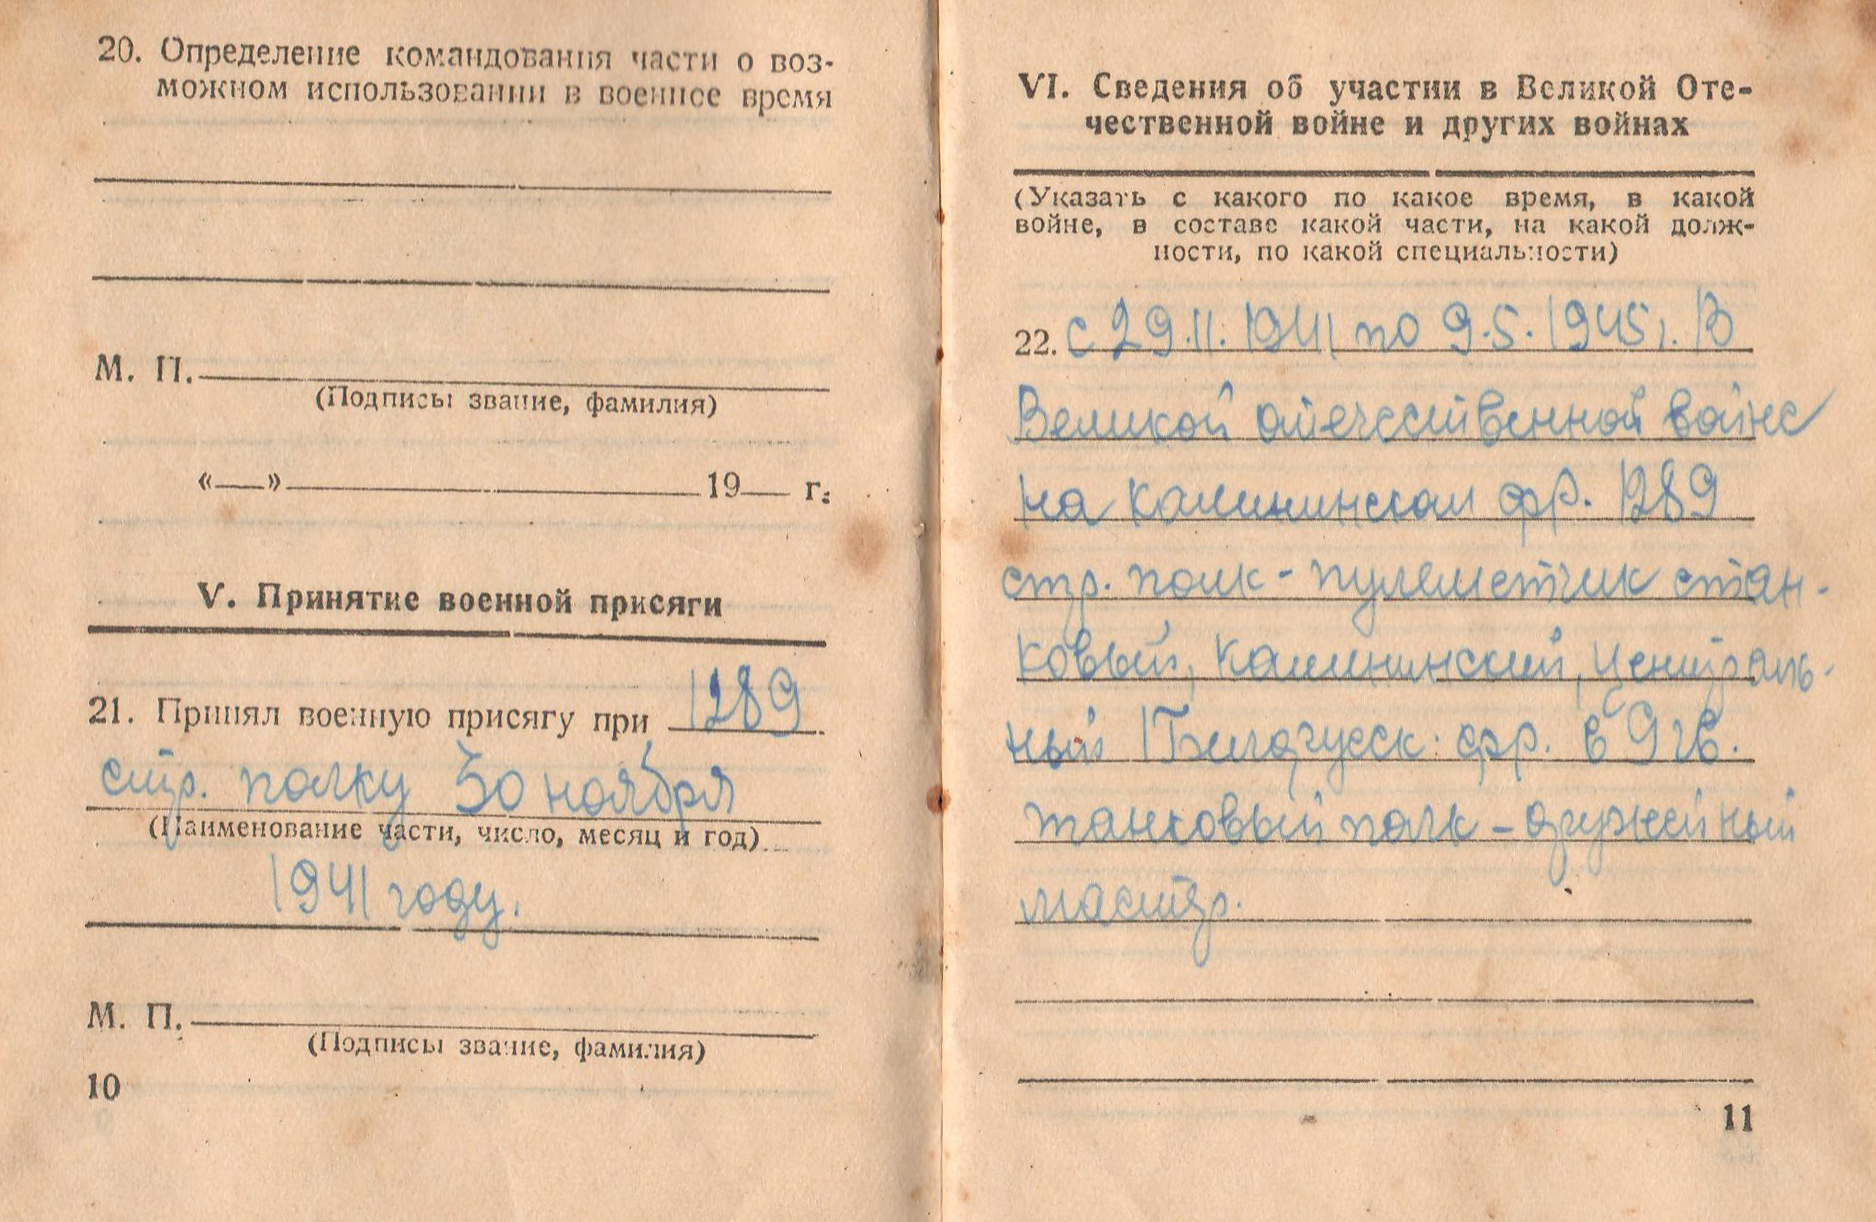 20. Определение командования части о воз-
можном использовании в военное время
М. П.
(Подписы звание, фамилия)
«—» 19— г.
V. Принятие военной присяги
21. Принял военную присягу при 1289
стр. полку 30 ноября
(Наименование части, число, месяц и год)
1941 году.
М. П.
(Подписы звание, фамилия)
10
VI. Сведения об участии в Великой Оте-
чественной войне и других войнах
(Указать с какого по какое время, в какой
войне, в составе какой части, на какой долж-
ности, по какой специальности)
22. с 29.11.1941 по 9.5.1945г. В
Великой отечественной войне
на Калининском фр. 1289
стр. полк - пулеметчик стан-
ковый, Калининский, Централь-
ный 1 Белорусск. фр. в 9 гв.
танковый полк - оружейный
мастер.
11